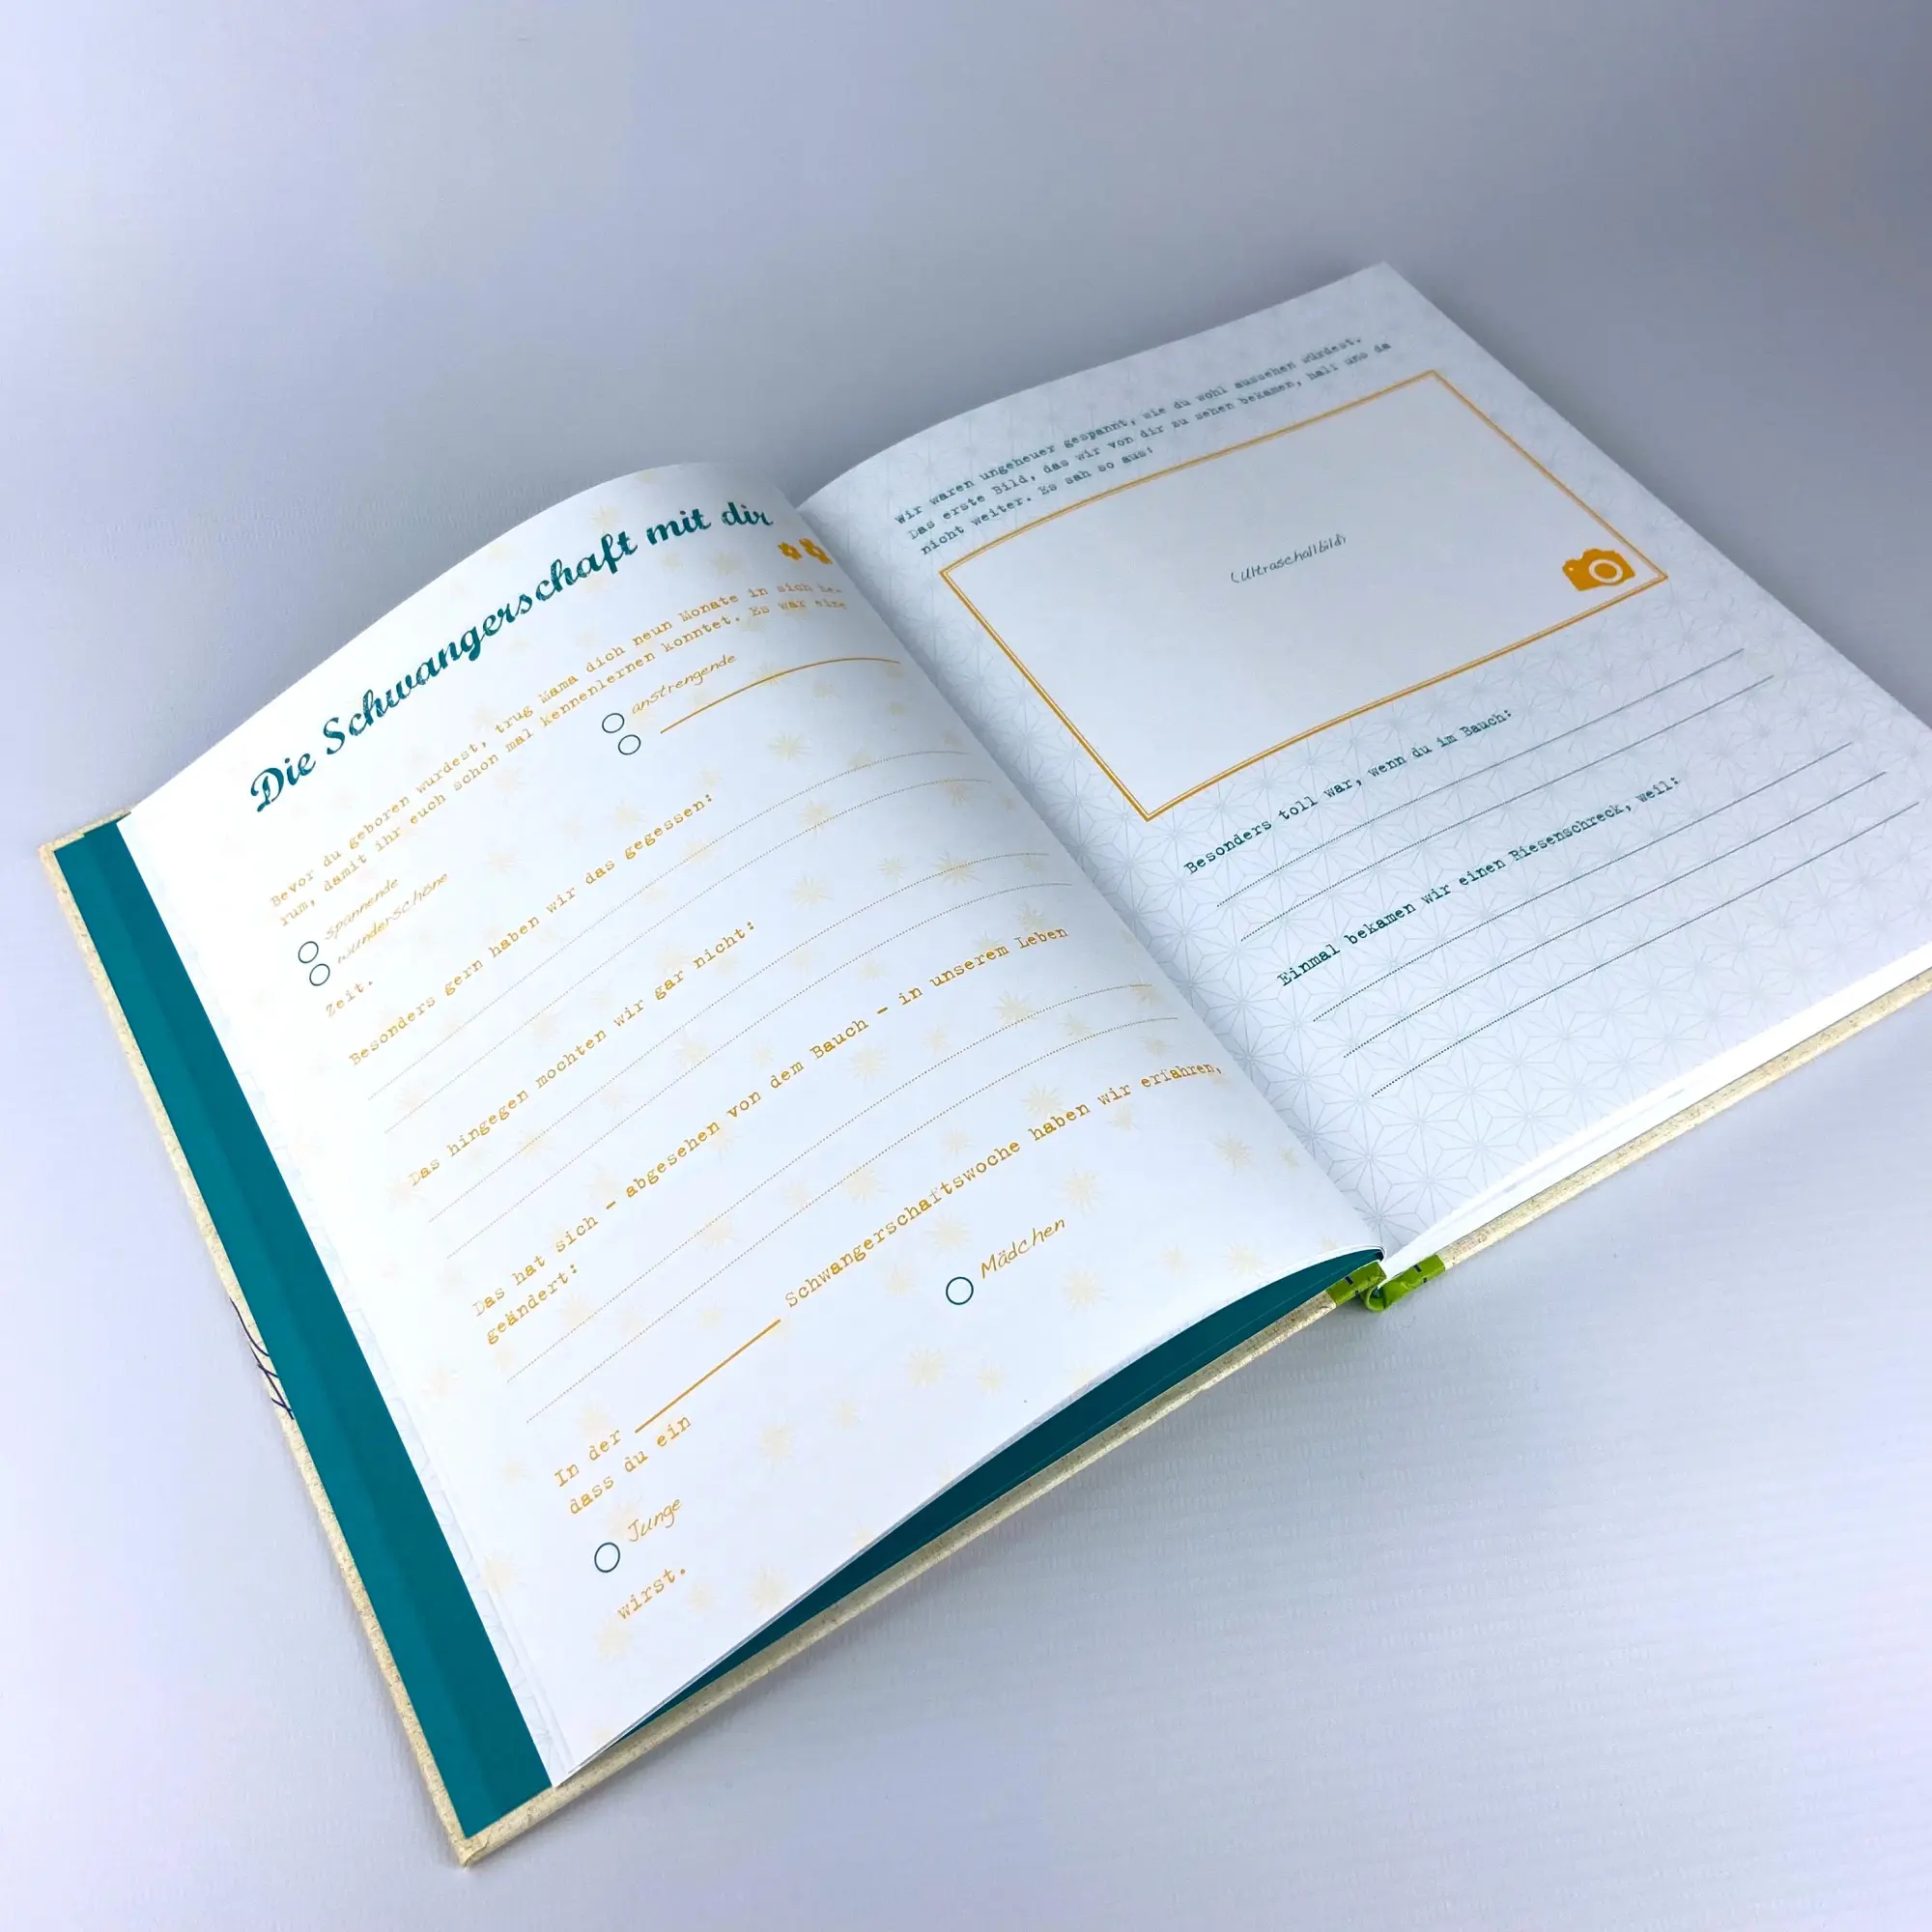 Die Schwangerschaft mit dir
Bevor du geboren wurdest, trug Mama dich neun Monate in sich he-
rum, damit ihr euch schon mal kennenlernen konntet. Es war eine
spannende
anstrengende
wunderschöne
Zeit.
Besonders gern haben wir das gegessen:
Das hingegen mochten wir gar nicht:
Das hat sich – abgesehen von dem Bauch – in unserem Leben
geändert:
In der Schwangerschaftswoche haben wir erfahren,
dass du ein
Junge
Mädchen
wirst.
Wir waren ungeheuer gespannt, wie du wohl aussehen würdest.
Das erste Bild, das wir von dir zu sehen bekamen, half uns da
nicht weiter. Es sah so aus:
(Ultraschallbild)
Besonders toll war, wenn du im Bauch:
Einmal bekamen wir einen Riesenschreck, weil: